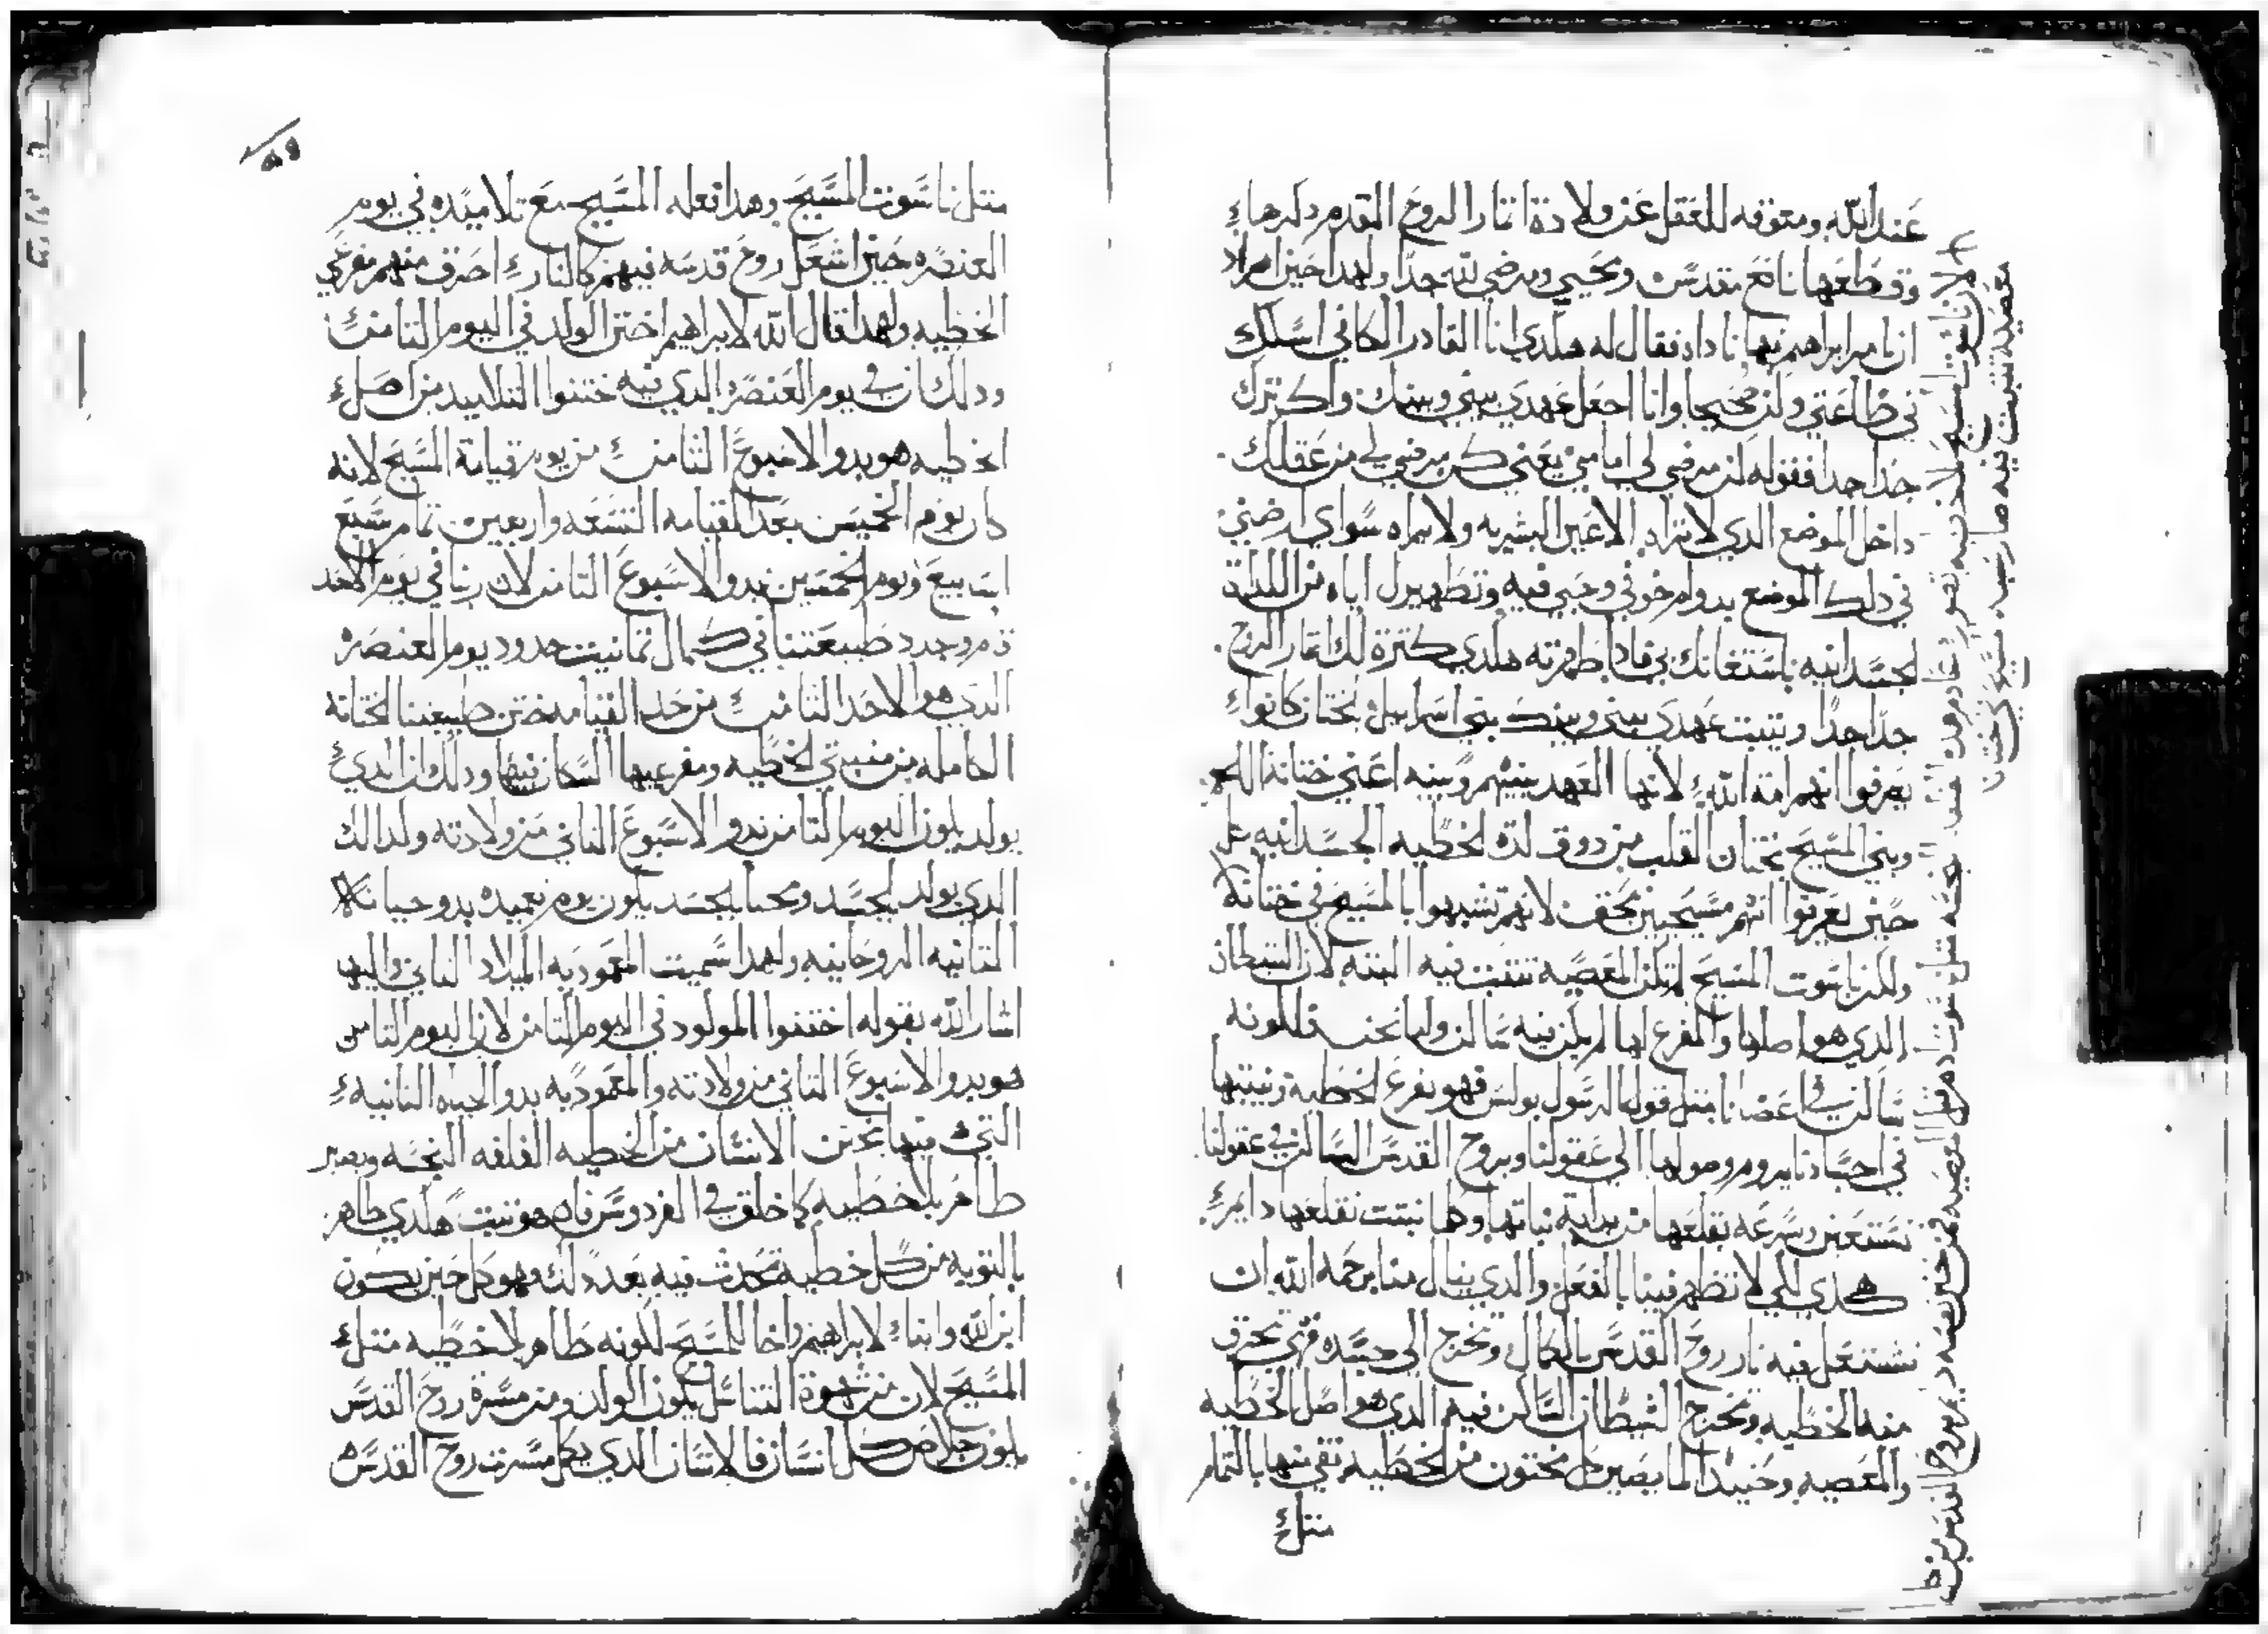 عند الله ومعوقه للعقل عن ولادة اتار الروح المقدم دكرها
وقطعها نافع مقدس ومحيي ومرضي لله جدا ولهدا حين اراد
ان يامر ابراهيم بها ناداه فقال له هكدي انا القادر الكافي اسلك
في طاعتي وكن صحيحا وانا اجعل عهدي بيني وبينك واكترك
جدا جدا فقوله كن مرضي لي امامي يعني كن مرضي لي من عقلك
داخل الموضع الدي لا تراه الاعين البشريه ولا يراه سواي ارضيني
في دلك الموضع بدوام خوفي وحبي فيه وتطهيرك اياه من اللداة
الجسدانيه باستغاتك بي فادا طهرته هكدي كترة لك اتمار الروح
جدا جدا ويتبت عهدي بيني وبينك بني اسراييل بختان كانوا
يعرفوا انهم امة الله لانها العهد بينهم وبينه اعني ختانة اللحم
وبني المسيح بختان القلب من دوق لدة الخطيه الجسدانيه
حين يعرفوا انهم مسيحيين بحق لانهم تشبهوا بالمسيح في ختانه
ولكن ناسوت المسيح لم تكن المعصيه تنبت فيه البته لان الشيطان
الدي هو اصلها والمفرع لها لم يكن فيه ساكن ولما نحن فلكونه
ساكن في اعضانا متل قول الرسول بولس فهو يفرع الخطيه وينبتها
في اجسادنا ويروم وصولها الي عقولنا وبروح القدس الساكن في عقولنا
نستعين وسرعه نقلعها من بداية نباتها وكلما نبتت نقلعها دايم
هكدي لكي لا تظهر فينا بالفعل والدي ينال منا برحمة الله ان
تشتعل فيه نار روح القدس بالكمال وتخرج الي جسده فهي تحرق
منه الخطيه وتخرج الشيطان الساكن فيه الدي هو اصل الخطيه
والمعصيه وحينيد لما يصير كل مختون من الخطيه نقي منها بالتمام
متل
متل ناسوت المسيح وهدا فعله المسيح مع تلاميده في يوم
العنصره حين اشعل روح قدسه فيهم كالنار احرق منهم مفرعي
الخطيه ولهدا قال الله لابراهيم اختن الولد في اليوم التامن
ودلك ان في يوم العنصره الدي فيه ختنوا التلاميد من اصل
الخطيه هو بدو الاسبوع التامن من يوم قيامة المسيح لانه
كان يوم الخميس بعد القيامه التسعه واربعين تمام سبع
اسابيع ويوم الخمسين بدو الاسبوع التامن لان ربنا في يوم الاحد
قام وجدد طبيعتنا في كمال تمانيت حدود يوم العنصره
الدي هو الاحد التامن من حد القيامه ختن طبيعتنا الختانه
الكامله من منبتي الخطيه ومفرعيها السكان فيها ودلك ان الدي
يولد يكون اليوم التامن بدو الاسبوع التاني من ولادته ولدالك
الدي يولد بالجسد ويحيا بالجسد يكون يوم تعميده بدو حياته
التانيه الروحانيه ولهدا سميت المعموديه الميلاد التاني واليها
اشار الله بقوله اختنوا المولود في اليوم التامن لان اليوم التامن
هو بدو الاسبوع التاني من ولادته والمعموديه بدو الحياه التانيه
التي فيها يختن الانسان من الخطيه الغلفه النجسه ويصير
طاهر بلا خطيه كما خلق في الفردوس فان هو تبت هكدي طاهر
بالتوبه من كل خطيه تحدت فيه بعد دلك فهو كل حين يكون
ابن الله وابناء لابراهيم واخا للمسيح لكونه طاهر بلا خطيه متل
المسيح لان من شهوة التناسل يكون الولد ومن مسرة روح القدس
يكون خلاص كل انسان فالانسان الدي يكمل مسرت روح القدس